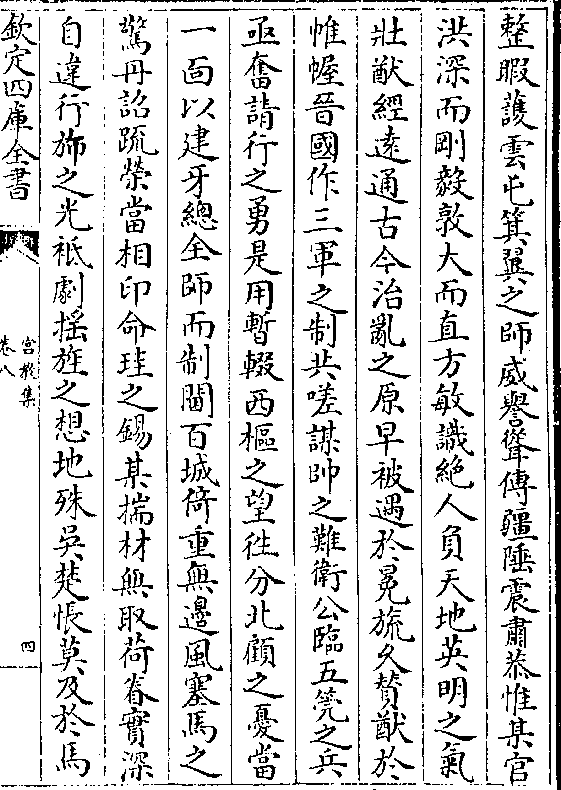 整暇護雲屯箕翼之師威譽聳傳疆陲震肅恭惟某官
洪深而剛毅敦大而直方敏識絶人負天地英明之氣
壯猷經逺通古今治亂之原早被遇於冕旒久賛猷於
帷幄晉國作三軍之制共嗟謀帥之難衛公臨五筦之兵
亟奮請行之勇是用暫輟西樞之望徃分北顧之憂當
一面以建牙總全師而制閫百城倚重無邊風塞馬之
驚丹詔疏榮當相印命珪之錫某揣材無取荷眷實深
自違行斾之光祗劇揺旌之想地殊吳楚悵莫及於馬
欽定四庫全書
卷八
四